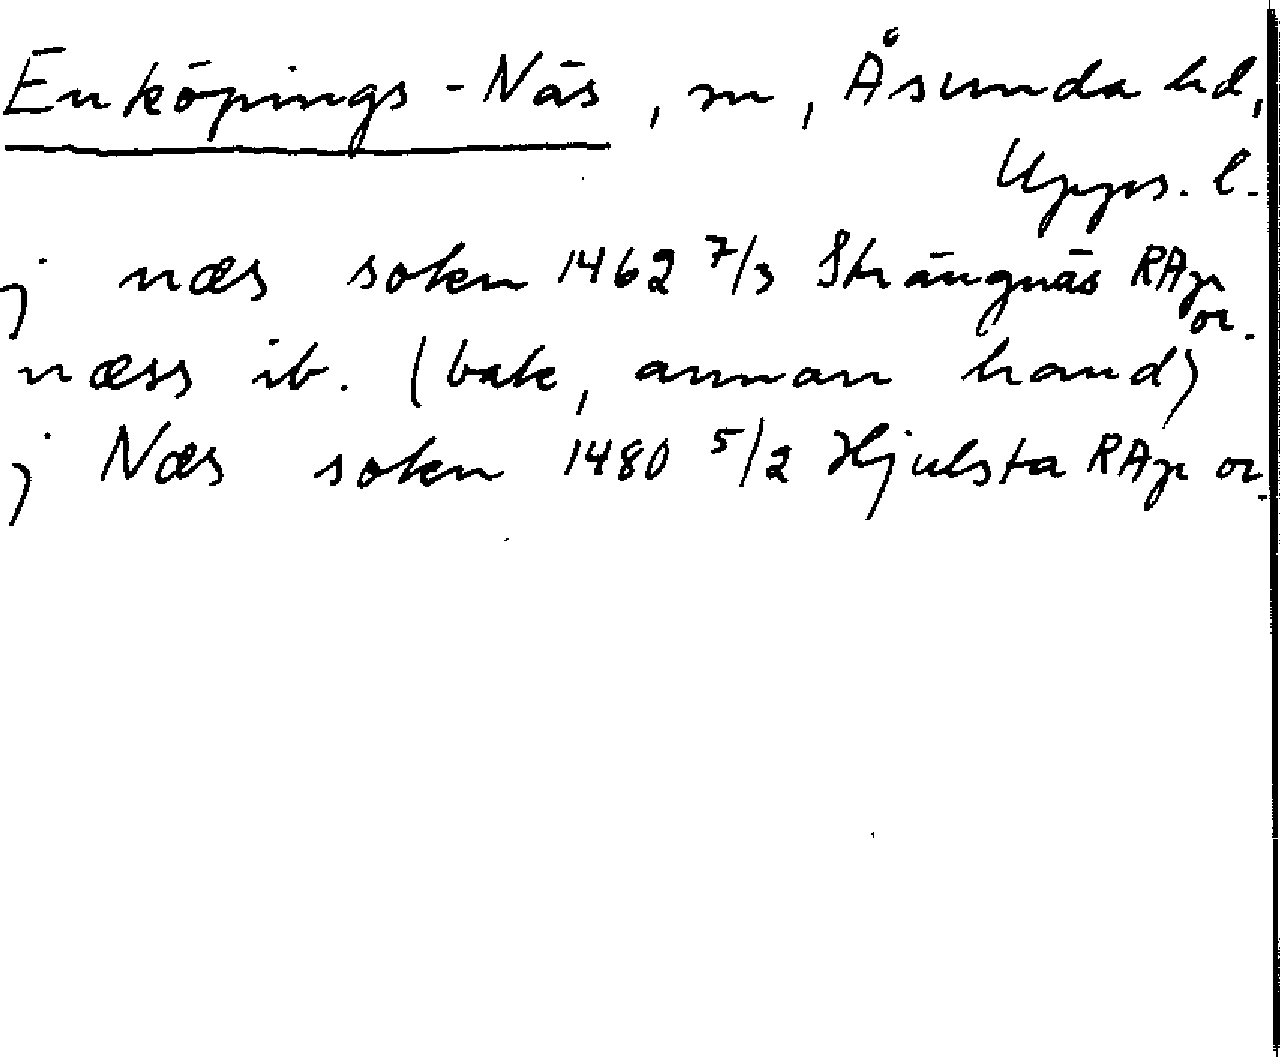 Enköpings-Näs, sn, Åsunda hd,
Upps. l.
j næs soken 1462 7/3 Strängnäs RAp or.
næss ib. (bak, annan hand)
j Næs soken 1480 5/2 Hjulsta RAp or.